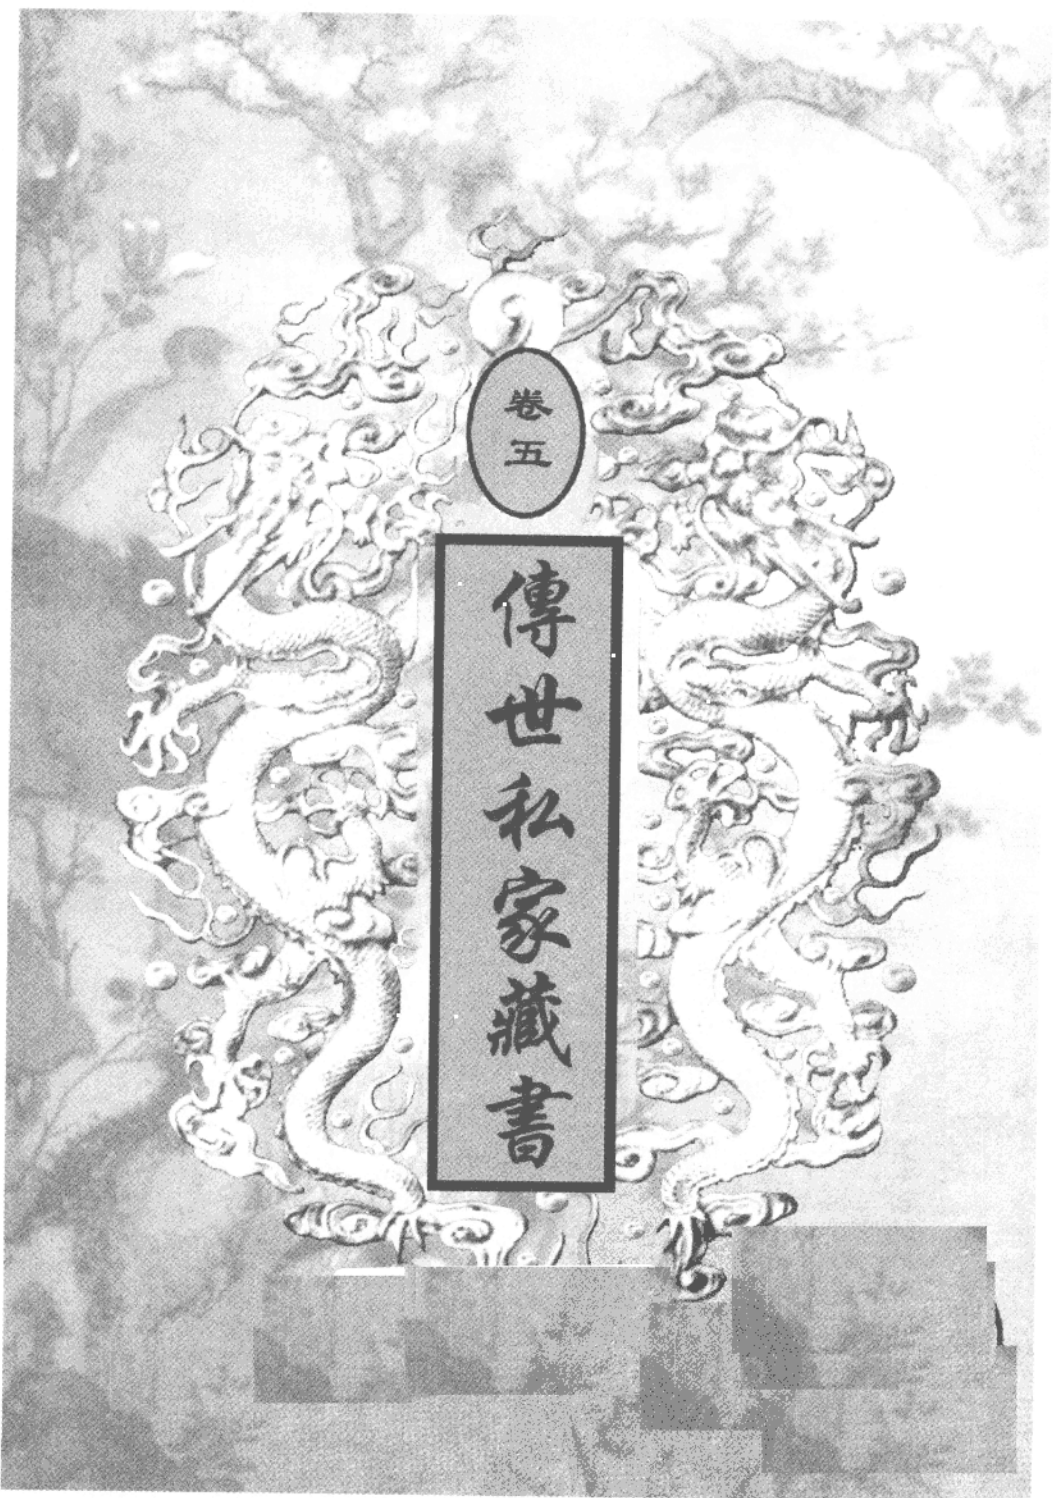 卷五
傳世私家藏書